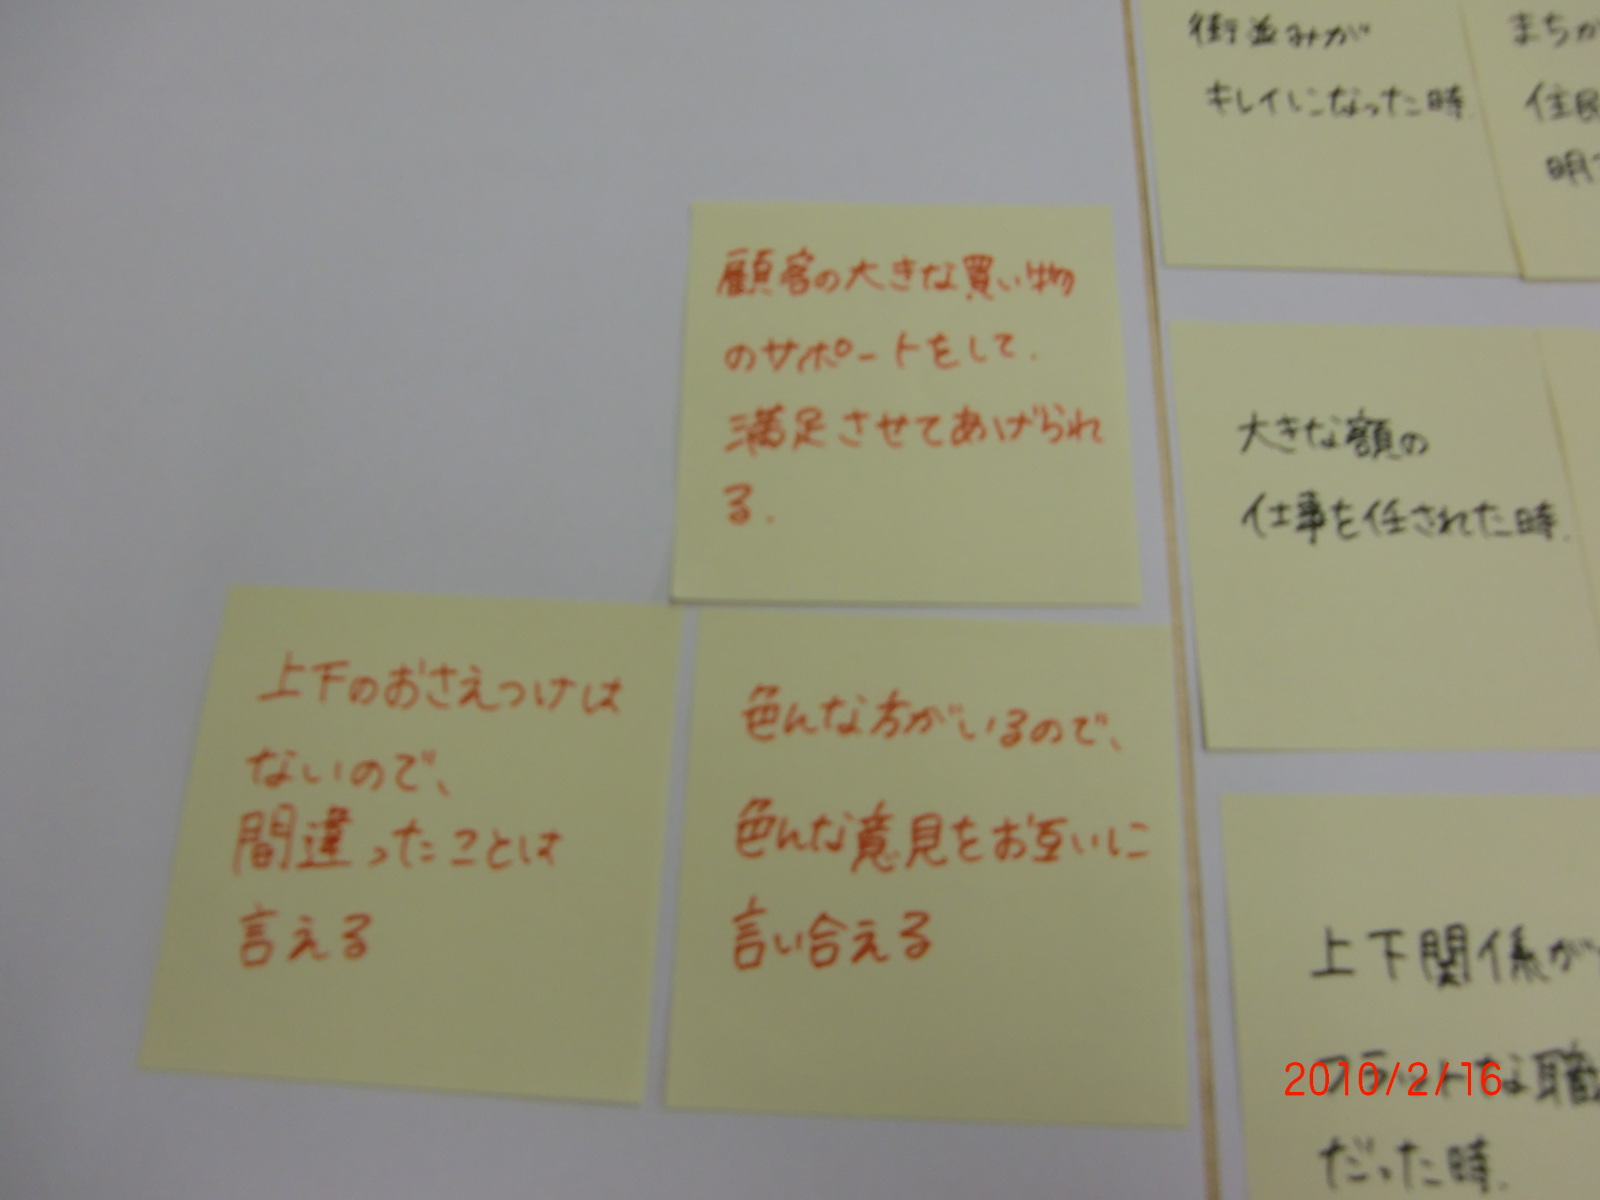 街並みが
キレイになった時.
まちが
住民
明
顧客の大きな買い物
のサポートをして.
満足させてあげられ
る.
大きな額の
仕事を任された時.
上下のおさえつけは
ないので、
間違ったことは
言える
色んな方がいるので、
色んな意見をお互いに
言い合える
上下関係が
フラットな職
だった時.
2010/2/16